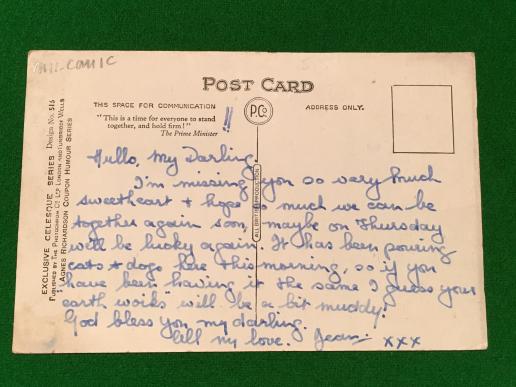 Mil-comic
POST CARD
THIS SPACE FOR COMMUNICATION
P.Co
ADDRESS ONLY.
"This is a time for everyone to stand
together, and hold firm!"
The Prime Minister
!!
ALL BRITISH PRODUCTION
EXCLUSIVE CELESQUE SERIES Design No. 516
PUBLISHED BY THE PHOTOCHROM CO. LTD. LONDON AND TUNBRIDGE WELLS
"AGNES RICHARDSON COUPON HUMOUR SERIES
Hello, My Darling,
I'm missing you so very much
sweetheart & hope so much we can be
together again soon, maybe on Thursday
we'll be lucky again. It has been pouring
cats & dogs here this morning, so if you
have been having it the same I guess your
"earth woiks" will be a bit muddy!
God bless you my darling.
All my love. Jean. xxx